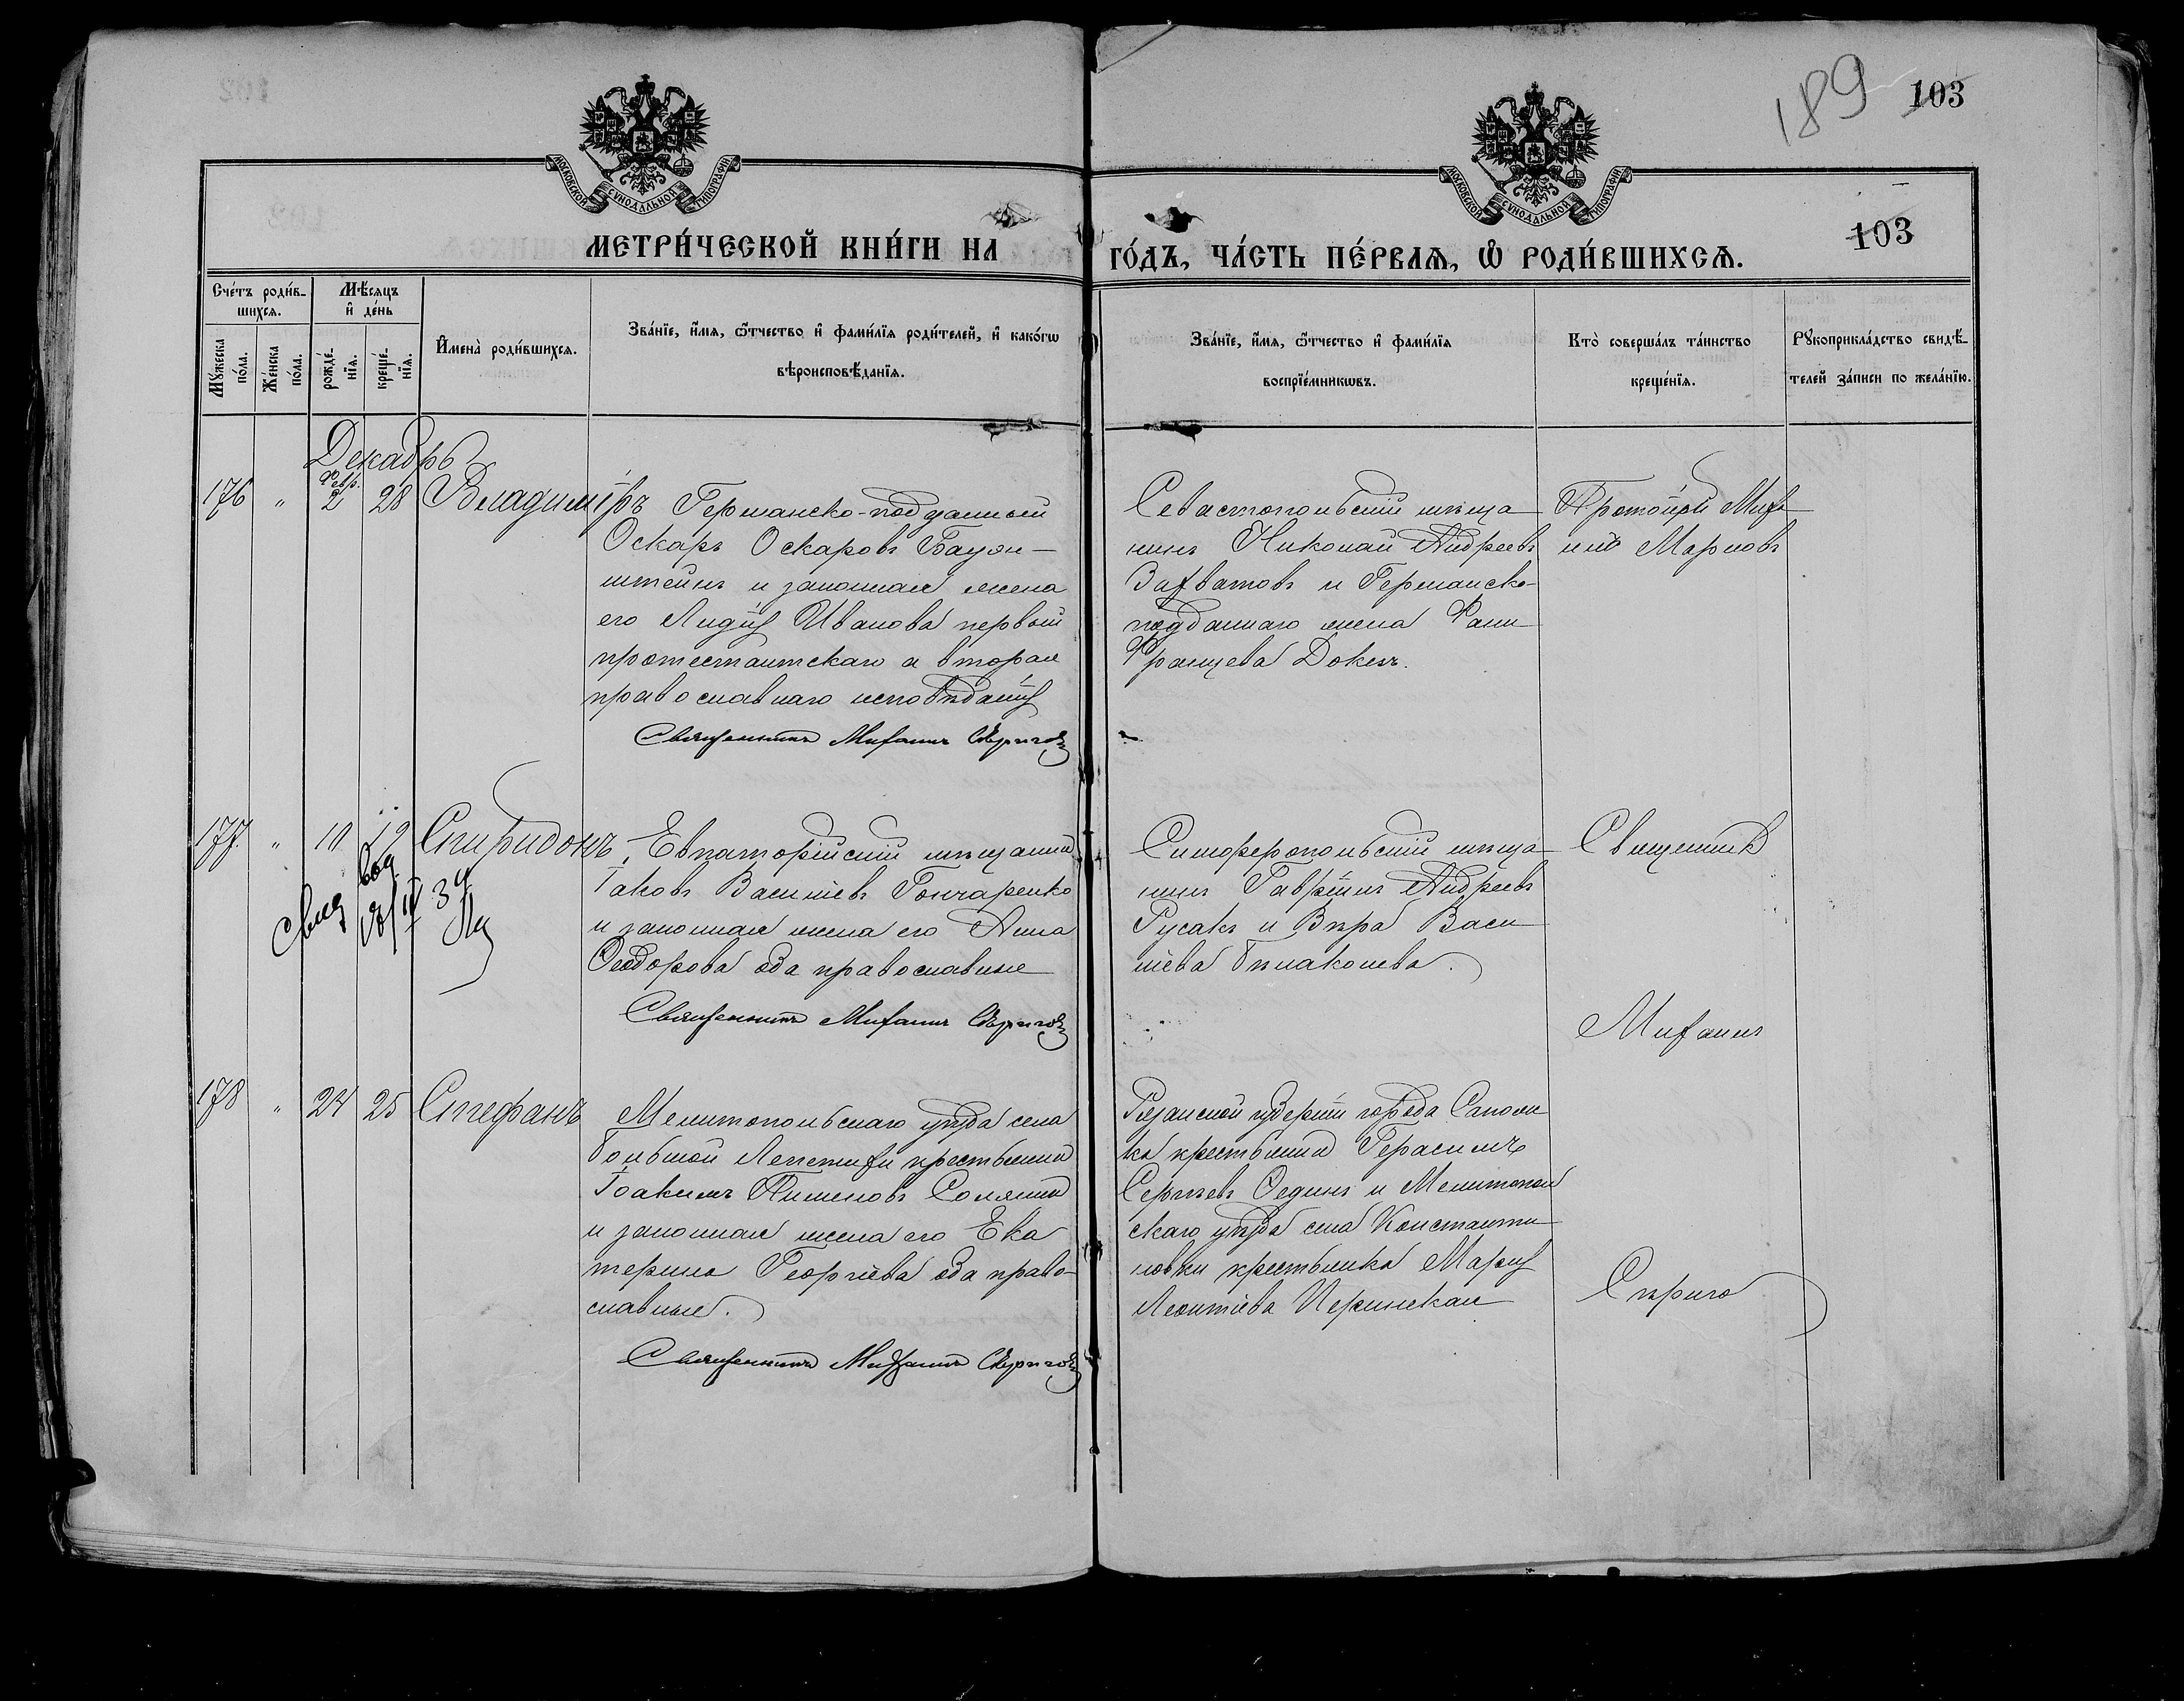 189 103
МОСКОВСКОЙ СѴНОДАЛЬНОЙ ТИПОГРАФІИ
МОСКОВСКОЙ СѴНОДАЛЬНОЙ ТИПОГРАФІИ
103
МЕТРИ́ЧЕСКОЙ КНИ́ГИ НА ГО́ДЪ, ЧА́СТЬ ПЕ́РВАѦ, Ѡ҆ РОДИ́ВШИХСѦ.
Сче́тъ роди́в-
шихсѧ.
Мꙋ́жеска
по́ла.
Же́нска
по́ла.
Мѣ́сѧцъ
и҆ де́нь
рожде́-
нїѧ.
креще́-
нїѧ.
И҆мена̀ роди́вшихсѧ.
Зва́нїе, и҆́мѧ, ѻ҆́тчество и҆ фами́лїѧ роди́телей, и҆ како́гѡ
вѣроисповѣ́данїѧ.
Зва́нїе, и҆́мѧ, ѻ҆́тчество и҆ фами́лїѧ
воспрїе́мникѡвъ.
Кто̀ соверша́лъ та́инство
креще́нїѧ.
Рꙋкоприкла́дство свидѣ́-
телей за́писи по жела́нїю.
Декабрь
176 " Февр. 2 28 Владиміръ
Германско-подданный
Оскаръ Оскаровъ Бауэн-
штейнъ и законная жена
его Лидія Иванова первый
протестантскаго а вторая
православнаго исповѣданія
Священникъ Михаилъ Сѣриковъ
Севастопольскій мѣща-
нинъ Николай Андреевъ
Захватовъ и Германско-
подданнаго жена Фани
Францева Докен.
Протоіерей Миха-
илъ Марковъ
177 " 10 19 Спиридонъ
Евпаторійскій мѣщанинъ
Іаковъ Васильевъ Гончаренко
и законная жена его Анна
Ѳеодорова оба православные
Священникъ Михаилъ Сѣриковъ
Симферопольскій мѣща-
нинъ Гавріилъ Андреевъ
Русакъ и Вѣра Васи-
льева
Священникъ
178 " 24 25 Стефанъ
Мелитопольскаго уѣзда села
Большой Лепетихи крестьянинъ
Іоакимъ Пименовъ
и законная жена его Ека-
терина Георгіева оба право-
славные.
Священникъ Михаилъ Сѣриковъ
Рязанской губерніи города
крестьянинъ Герасимъ
Сергѣевъ Сединъ и Мелитополь-
скаго уѣзда села Константи-
новки крестьянка Марія
Леонтіева
Михаилъ